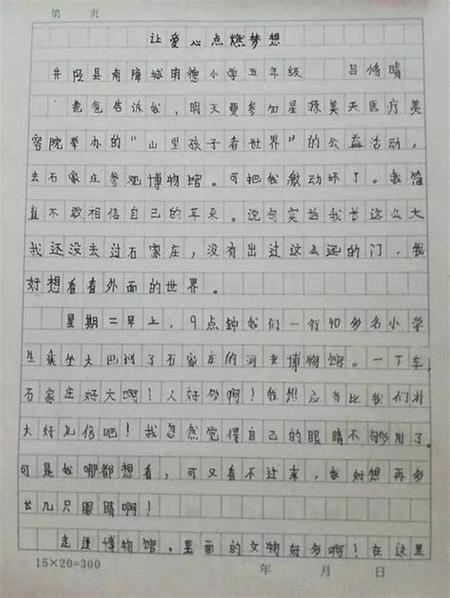 第 页
让爱心点燃梦想
井陉县南障城明德小学五年级 吕脩晴
爸爸告诉我，明天要参加星源美天医疗美
容院举办的“山里孩子看世界”的公益活动，
去石家庄参观博物馆。可把我激动坏了。我简
直不敢相信自己的耳朵。说句实话我长这么大
我还没去过石家庄，没有出过这么远的门，我
好想看看外面的世界。
星期二早上，9点钟我们一行40多名小学
生乘坐大巴到了石家庄的河北博物馆。一下车，
石家庄好大啊！人好多啊！我想应当比我们村
大好几倍吧！我忽然觉得自己的眼睛不够用了。
可是我哪都想看，可又看不过来，我好想再多
出几只眼睛啊！
走进博物馆，里面的文物好多啊！在这里
15×20=300 年 月 日